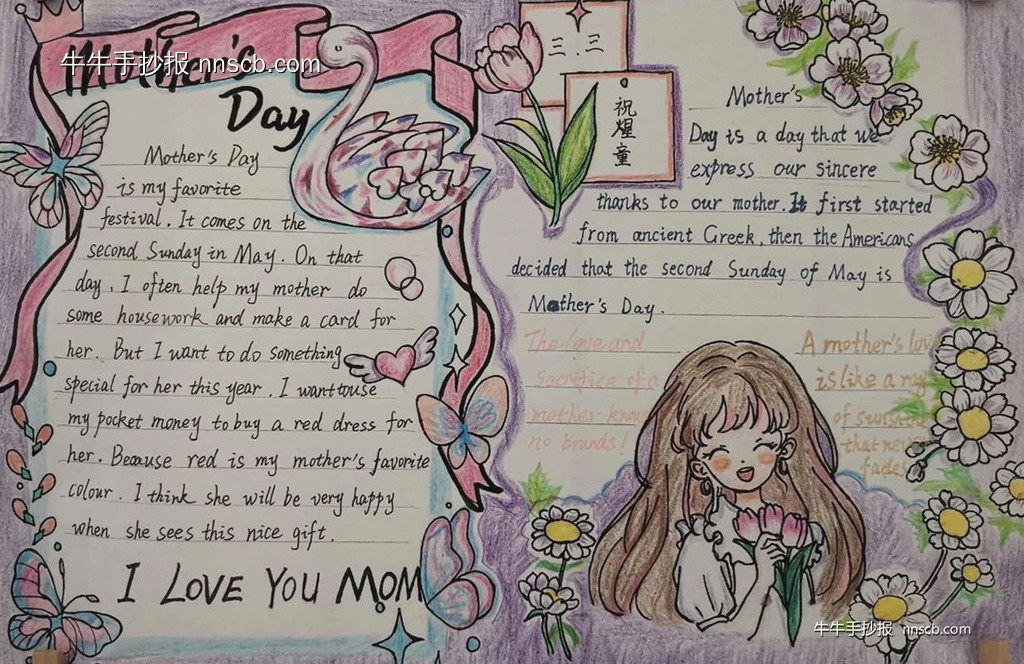 Mother's
Day
牛牛手抄报 nnscb.com
Mother's Day
is my favorite
festival. It comes on the
second Sunday in May. On that
day, I often help my mother do
some housework and make a card for
her. But I want to do something
special for her this year. I want to use
my pocket money to buy a red dress for
her. Because red is my mother's favorite
colour. I think she will be very happy
when she sees this nice gift.
I LOVE YOU MOM
三.三
祝煋童
Mother's
Day is a day that we
express our sincere
thanks to our mother. It first started
from ancient Greek, then the Americans
decided that the second Sunday of May is
Mother's Day.
The love and
sacrifice of a
mother know
no bounds!
A mother's love
is like a ray
of sunshine
that never
fades.
牛牛手抄报 nnscb.com